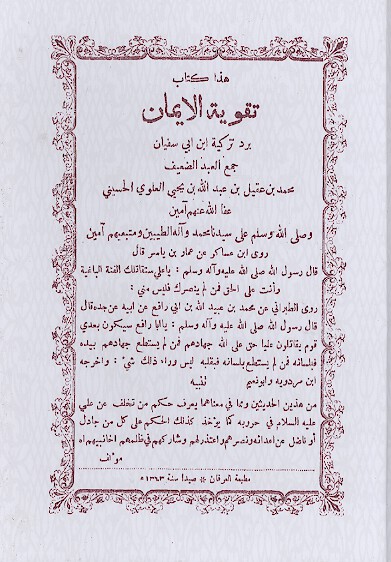 هذا كتاب
تقوية الايمان
برد تزكية ابن ابي سفيان
جمع العبد الضعيف
محمد بن عقيل بن عبد الله بن يحيى العلوي الحسيني
عفا الله عنهم آمين
وصلى الله وسلم على سيدنا محمد وآله الطيبين ومتبعيهم آمين
روى ابن عساكر عن عمار بن ياسر قال
قال رسول الله صلى الله عليه وآله وسلم : ياعلي ستقاتلك الفئة الباغية
وأنت على الحق فمن لم ينصرك فليس مني :
روى الطبراني عن محمد بن عبيد الله بن ابي رافع عن ابيه عن جده قال
قال رسول الله صلى الله عليه وآله وسلم : ياابا رافع سيكون بعدي
قوم يقاتلون عليا حق على الله جهادهم فمن لم يستطع جهادهم بيده
فبلسانه فمن لم يستطع بلسانه فبقلبه ليس وراء ذالك شيء : واخرجه
ابن مردويه وابو نعيم
تنبيه
من هذين الحديثين وبما في معناهما يعرف حكم من تخلف عن علي
عليه السلام في حروبه كما يؤخذ كذلك الحكم على كل من جادل
أو ناضل عن اعدائه ونصرهم واعتذر لهم وشاركهم في ظلمهم اخانيهم اه
مؤلف
مطبعة العرفان * صيدا سنة ١٣٤٣ ه